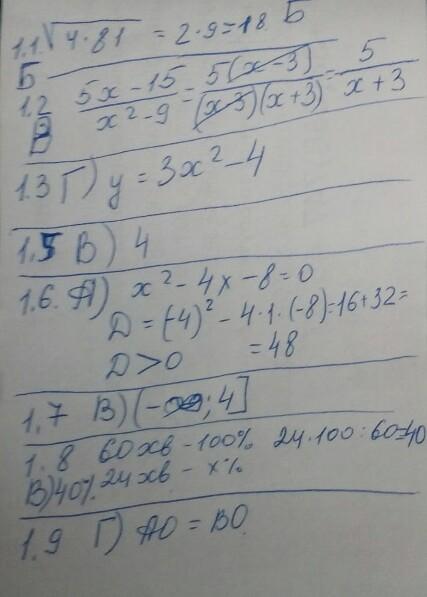 1.1. √4·81 = 2·9=18 Б
Б
1.2 (5x-15)/(x²-9) = 5(x-3)/((x-3)(x+3)) = 5/(x+3)
В
1.3 Г) y = 3x²-4
1.5 В) 4
1.6. А) x²-4x-8=0
D = (-4)² - 4·1·(-8)=16+32=
D>0 =48
1.7 В) (-∞; 4]
1.8 60хв - 100% 24·100:60=40
В)40% 24хв - x%
1.9 Г) AO = BO